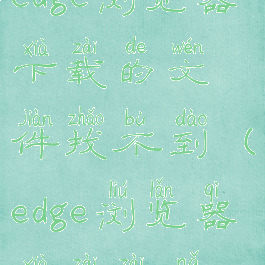 edge浏览器
xià zài de wén
下载的文
jiàn zhǎo bú dào
件找不到（
liú lǎn qì
edge浏览器
xià zài zài nǎ